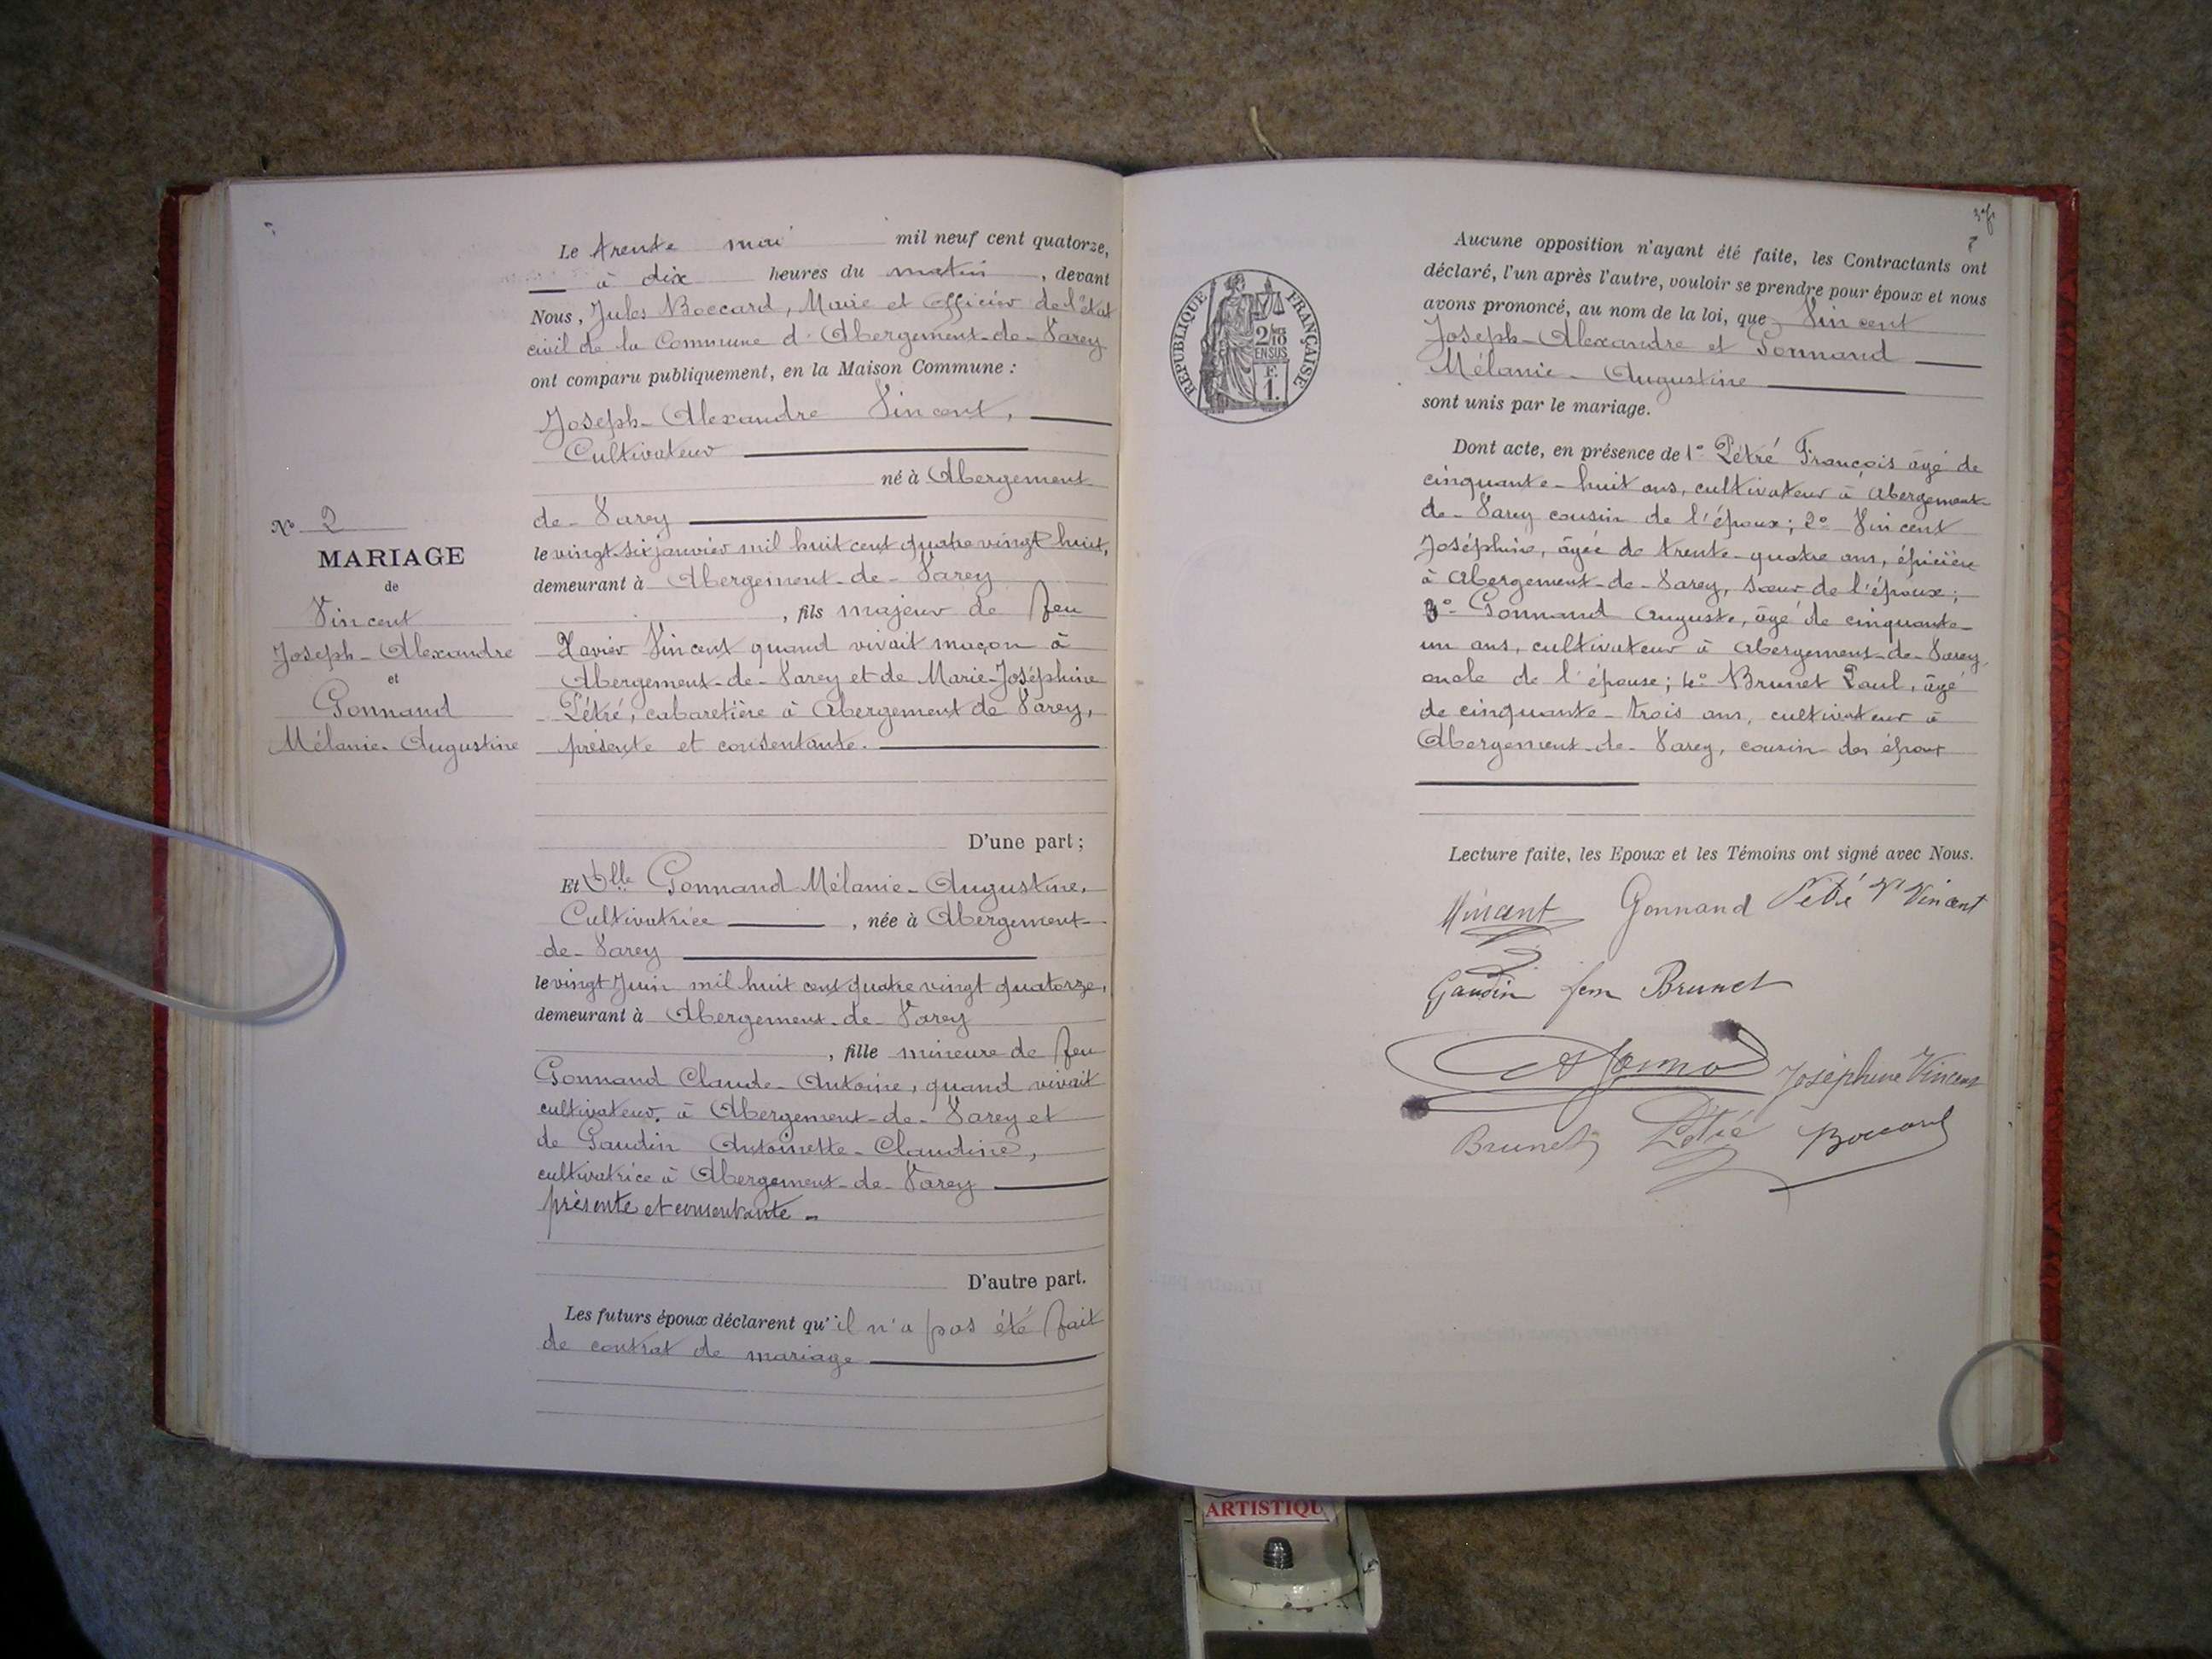 Le trente mai mil neuf cent quatorze,
à dix heures du matin, devant
Nous, Jules Boccard, Maire et officier de l'état
civil de la Commune d'Abergement-de-Varey
ont comparu publiquement, en la Maison Commune :
Joseph-Alexandre Vincent,
Cultivateur
né à Abergement-
de-Varey
le vingt-six janvier mil huit cent quatre vingt huit,
demeurant à Abergement-de-Varey
, fils majeur de feu
Xavier Vincent quand vivait maçon à
Abergement-de-Varey et de Marie-Joséphine
Pétré, cabaretière à Abergement de Varey,
présente et consentante.
D'une part ;
Et Dlle Gonnand Mélanie-Augustine,
Cultivatrice, née à Abergement-
de-Varey
le vingt Juin mil huit cent quatre vingt quatorze,
demeurant à Abergement-de-Varey
, fille mineure de feu
Gonnand Claude-Antoine, quand vivait
cultivateur, à Abergement-de-Varey et
de Gaudin Antoinette-Claudine,
cultivatrice à Abergement-de-Varey
présente et consentante -
D'autre part.
Les futurs époux déclarent qu'il n'a pas été fait
de contrat de mariage
No 2
MARIAGE
de
Vincent
Joseph-Alexandre
et
Gonnand
Mélanie-Augustine
RÉPUBLIQUE FRANÇAISE
2/10
EN SUS
F.
1.
Aucune opposition n'ayant été faite, les Contractants ont
déclaré, l'un après l'autre, vouloir se prendre pour époux et nous
avons prononcé, au nom de la loi, que Vincent
Joseph-Alexandre et Gonnand
Mélanie-Augustine
sont unis par le mariage.
Dont acte, en présence de 1° Pétré François âgé de
cinquante-huit ans, cultivateur à Abergement-
de-Varey cousin de l'époux; 2° Vincent
Joséphine, âgée de trente-quatre ans, épicière
à Abergement-de-Varey, sœur de l'époux;
3° Gonnand Auguste, âgé de cinquante-
un ans, cultivateur à Abergement-de-Varey,
oncle de l'épouse; 4° Brunet Paul, âgé
de cinquante-trois ans, cultivateur à
Abergement-de-Varey, cousin des époux
Lecture faite, les Epoux et les Témoins ont signé avec Nous.
Vincent Gonnand Pétré Vve Vincent
Gaudin fem Brunet
Joséphine Vincent
Brunet Pétré Boccard
ARTISTIQU